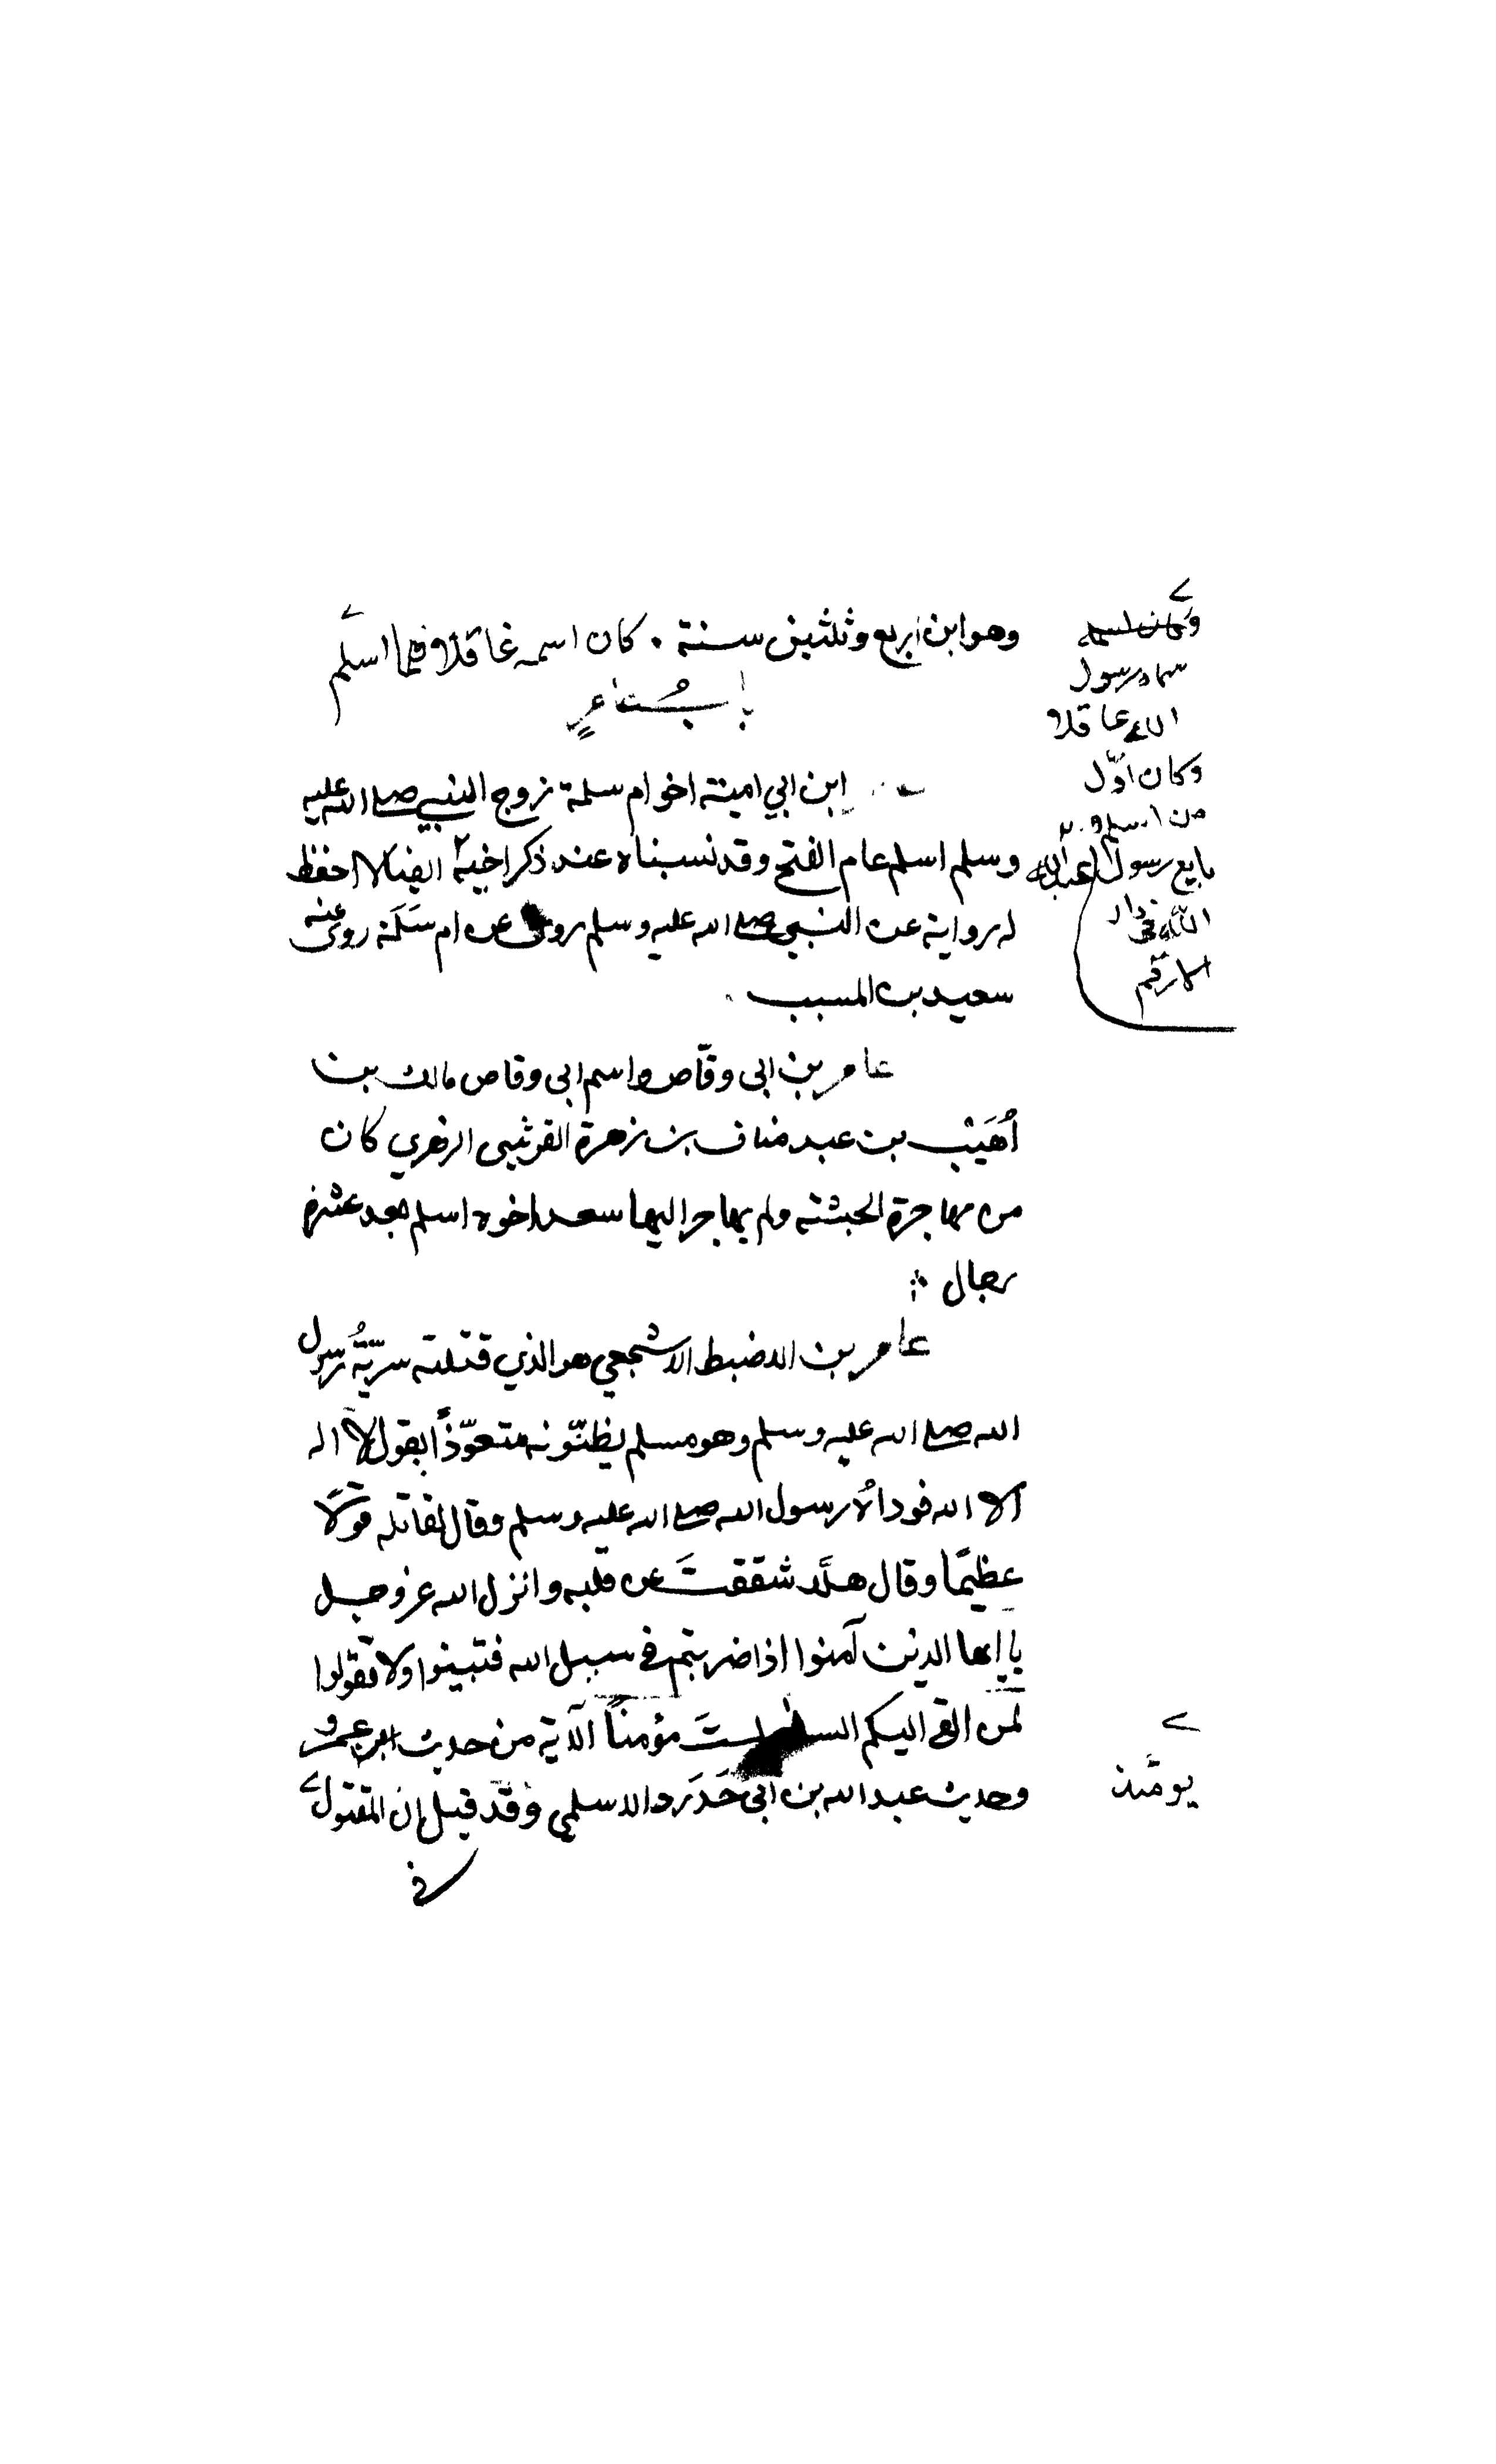 وهو ابن اربع وثلثين سنة . كان اسمه غافلا فلما اسلم
سماه رسول
الله عاقلا
وكان اوّل
من اسلم و
بايع رسول
الله في دار
الارقم
باب عامر
ابن ابي امية اخو ام سلمة زوج النبي صلى الله عليه
وسلم اسلم عام الفتح وقد نسبناه عند ذكر اخيه عبد الله لا احفظ
له رواية عن النبي صلى الله عليه وسلم روى عن ام سَلَمَة روى عنه
سعيد بن المسيب
عامر بن ابى وقّاص واسم ابى وقاص مالك بن
أُهَيْب بن عبد مناف بن زهرة القرشى الزهري كان
من مهاجرة الحبشة ولم يهاجر اليها سعد اخوه اسلم بعد عشرة
رجال
عامر بن الاضبط الاشجعي هو الذي قتلته سريّةُ رسول
الله صلى الله عليه وسلم وهو مسلم يظنّونه متعوّذًا بقول لا اله
الا الله فوداه رسول الله صلى الله عليه وسلم وقال لقاتله قولًا
عظيمًا وقال هلَّا شققتَ عن قلبه وانزل الله عز وجل
يا ايها الذين آمنوا اذا ضربتم في سبيل الله فتبينوا ولا تقولوا
لمن القى اليكم السلم لستَ مؤمناً الآية من حديث ابن عمر
وحديث عبد الله بن ابى حَدَرد الاسلمي وقد قيل إن المقتول
يومئذ
في